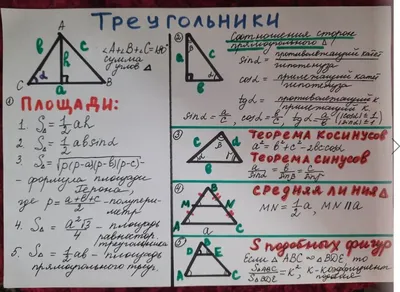 ТРЕУГОЛЬНИКИ
A
в
c
h
α
a
C
B
∠A+∠B+∠C=180°
сумма
углов △
① ПЛОЩАДИ:
1. S△ = 1/2 ah
2. S△ = 1/2 ab sinα
3. S△ = √p(p-a)(p-b)(p-c) -
- формула площади
Герона,
где p = a+b+c/2 - полупери-
метр
4. S△ = a²√3/4 - площадь
равностор.
треугольника
5. S△ = 1/2 ab - площадь
прямоугольного треуг.
②
Соотношения сторон
прямоугольного △
sinα = противолежащий катет/гипотенуза
cosα = прилежащий катет/гипотенуза
tgα = противолежащий к/прилежащий к
sinα = a/c, cosα = b/c, tgα = a/b
③
ТЕОРЕМА КОСИНУСОВ
a² = b²+c²-2bc cosα
ТЕОРЕМА СИНУСОВ
a/sinα = b/sinβ = c/sinγ
④
B
M
N
A
C
a
СРЕДНЯЯ ЛИНИЯ △
MN = 1/2 a, MN ∥ a
⑤
B
D
E
A
C
S ПОДОБНЫХ ФИГУР
Если △ABC ∾ △BDE, то
S△ABC/S△BDE = K², K - коэффициент
подобия